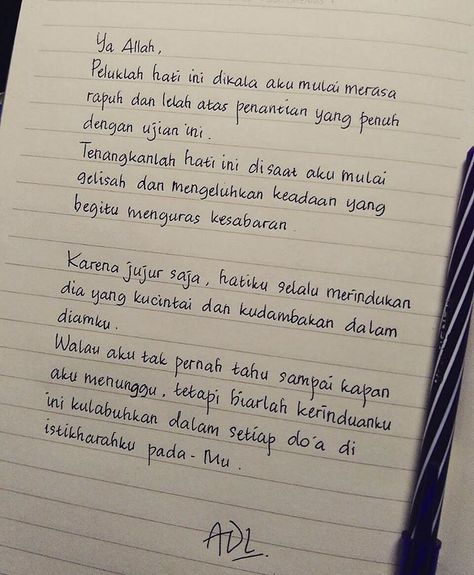 Ya Allah,
Peluklah hati ini dikala aku mulai merasa
rapuh dan lelah atas penantian yang penuh
dengan ujian ini.
Tenangkanlah hati ini disaat aku mulai
gelisah dan mengeluhkan keadaan yang
begitu menguras kesabaran.
Karena jujur saja, hatiku selalu merindukan
dia yang kucintai dan kudambakan dalam
diamku.
Walau aku tak pernah tahu sampai kapan
aku menunggu, tetapi biarlah kerinduanku
ini kulabuhkan dalam setiap do'a di
istikharahku pada-Mu.
ADL.